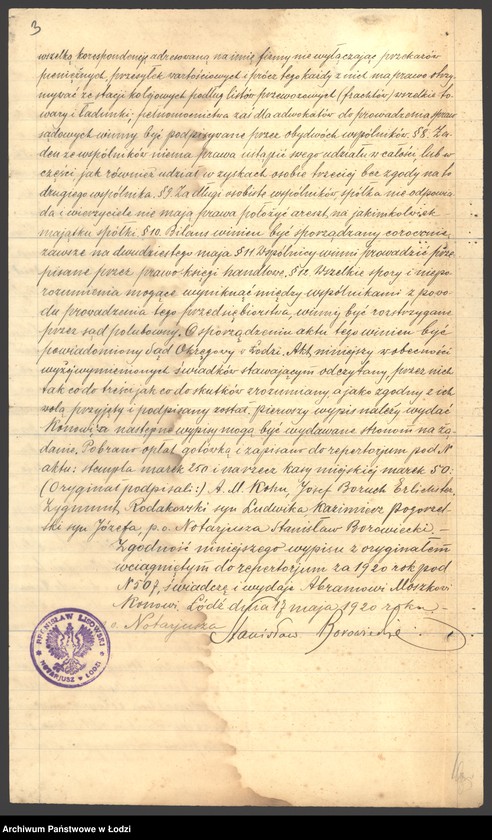 3
wszelką korespondencję adresowaną na imię firmy nie wyłączając przekazów
pieniężnych, przesyłek wartościowych i prócz tego każdy z nich ma prawo otrzy-
mywać ze stacji kolejowych podług listów przewozowych (frachtów) wszelkie to-
wary i ładunki. pełnomocnictwa zaś dla adwokatów do prowadzenia spraw
sądowych winny być podpisywane przez obydwóch wspólników. § 8. Ża-
den ze wspólników niema prawa ustąpić swego udziału w całości, lub w
części jak również udział w zyskach osobie trzeciej bez zgody na to
drugiego wspólnika. § 9. Za długi osobiste wspólników, spółka nie odpowia-
da i wierzyciele nie mają prawa położyć areszt, na jakimkolwiek
majątku spółki. § 10. Bilans winien być sporządzany corocznie,
zawsze na dwudziestego maja. § 11. Wspólnicy winni prowadzić prze-
pisane przez prawo księgi handlowe. § 12. Wszelkie spory i niepo-
rozumienia mogące wyniknąć między wspólnikami z powo-
du prowadzenia tego przedsiębiorstwa, winny być rozstrzygane
przez sąd polubowny. O sporządzeniu aktu tego winien być
powiadomiony Sąd Okręgowy w Łodzi. Akt niniejszy w obecności
wyżejwymienionych świadków stawającym odczytany, przez nich
tak co do treści jak co do skutków zrozumiany a jako zgodny z ich
wolą przyjęty i podpisany został. pierwszy wypis należy wydać
Konowi, a następne wypisy mogą być wydawane stronom na żą-
danie. Pobrano opłat gotówką i zapisano do repertorjum pod N
aktu: stempla marek 250 i na rzecz kasy miejskiej marek 50:
(Oryginał podpisali:) A. M. Kohn, Josef Boruch Erlichster,
Zygmunt Rodakowski syn Ludwika Kazimierz Pogorzel-
ski syn Józefa, p.o. Notarjusza Stanisław Borowiecki. —
Zgodność niniejszego wypisu z oryginałem
wciągniętym do repertorjum za 1920 rok pod
N 507, świadczę i wydaję Abramowi Moszkowi
Konowi. Łódź dnia 17 maja 1920 roku
p. o. Notarjusza Stanisław Borowiecki
STANISŁAW
NOTARJUSZ w ŁODZI
Archiwum Państwowe w Łodzi